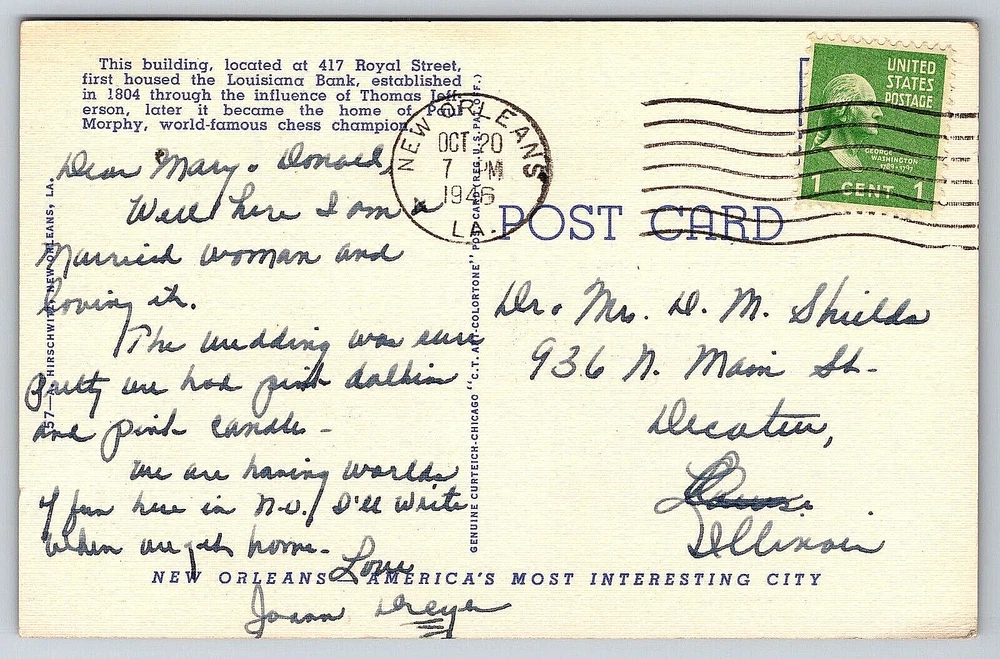 This building, located at 417 Royal Street,
first housed the Louisiana Bank, established
in 1804 through the influence of Thomas Jeff-
erson, later it became the home of Paul
Morphy, world-famous chess champion.
Dear Mary & Donald,
Well here I am a
Married woman and
loving it.
The wedding was sure
pretty we had pink dalhias
and pink candles -
We are having worlds
of fun here in N.O. I'll write
when we get home.
Love
Joann Dreyer
57— HIRSCHWITZ, NEW ORLEANS, LA.
GENUINE CURTEICH-CHICAGO "C.T. ART-COLORTONE" POST CARD (REG. U.S. PAT. OFF.)
NEW ORLEANS
OCT 20
7 PM
1946
LA.
UNITED
STATES
POSTAGE
GEORGE
WASHINGTON
1789-1797
1 CENT 1
POST CARD
Dr. & Mrs. D. M. Shields
936 N. Main St.
Decatur,
Illinois
NEW ORLEANS AMERICA'S MOST INTERESTING CITY